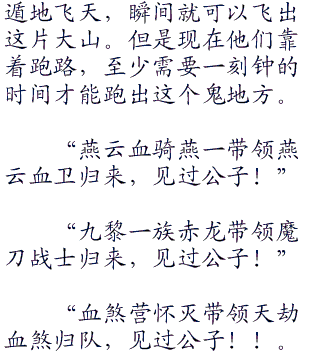 遁地飞天，瞬间就可以飞出
这片大山。但是现在他们靠
着跑路，至少需要一刻钟的
时间才能跑出这个鬼地方。
“燕云血骑燕一带领燕
云血卫归来，见过公子！”
“九黎一族赤龙带领魔
刀战士归来，见过公子！”
“血煞营怀灭带领天劫
血煞归队，见过公子！！。